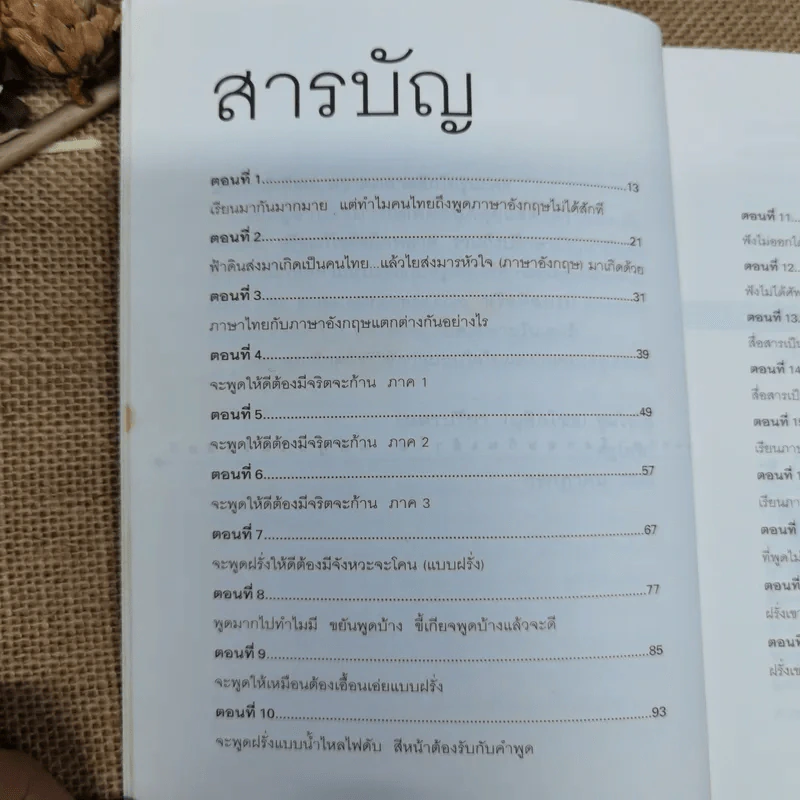 สารบัญ
ตอนที่ 1........................................13
เรียนมากันมากมาย แต่ทำไมคนไทยถึงพูดภาษาอังกฤษไม่ได้สักที
ตอนที่ 2........................................21
ฟ้าดินส่งมาเกิดเป็นคนไทย...แล้วไยส่งมารหัวใจ (ภาษาอังกฤษ) มาเกิดด้วย
ตอนที่ 3........................................31
ภาษาไทยกับภาษาอังกฤษแตกต่างกันอย่างไร
ตอนที่ 4........................................39
จะพูดให้ดีต้องมีจริตจะก้าน ภาค 1
ตอนที่ 5........................................49
จะพูดให้ดีต้องมีจริตจะก้าน ภาค 2
ตอนที่ 6........................................57
จะพูดให้ดีต้องมีจริตจะก้าน ภาค 3
ตอนที่ 7........................................67
จะพูดฝรั่งให้ดีต้องมีจังหวะจะโคน (แบบฝรั่ง)
ตอนที่ 8........................................77
พูดมากไปทำไมมี ขยันพูดบ้าง ขี้เกียจพูดบ้างแล้วจะดี
ตอนที่ 9........................................85
จะพูดให้เหมือนต้องเอื้อนเอ่ยแบบฝรั่ง
ตอนที่ 10........................................93
จะพูดฝรั่งแบบน้ำไหลไฟดับ สีหน้าต้องรับกับคำพูด
ตอนที่ 11...
ฟังไม่ออกไ
ตอนที่ 12...
ฟังไม่ได้ศัพ
ตอนที่ 13.
สื่อสารเป็น
ตอนที่ 14
สื่อสารเป็
ตอนที่ 1
เรียนภาษ
ตอนที่ 1
เรียนภา
ตอนที่
ที่พูดไม่
ตอนที่
ฝรั่งเขา
ตอนที่
ฝรั่งเข